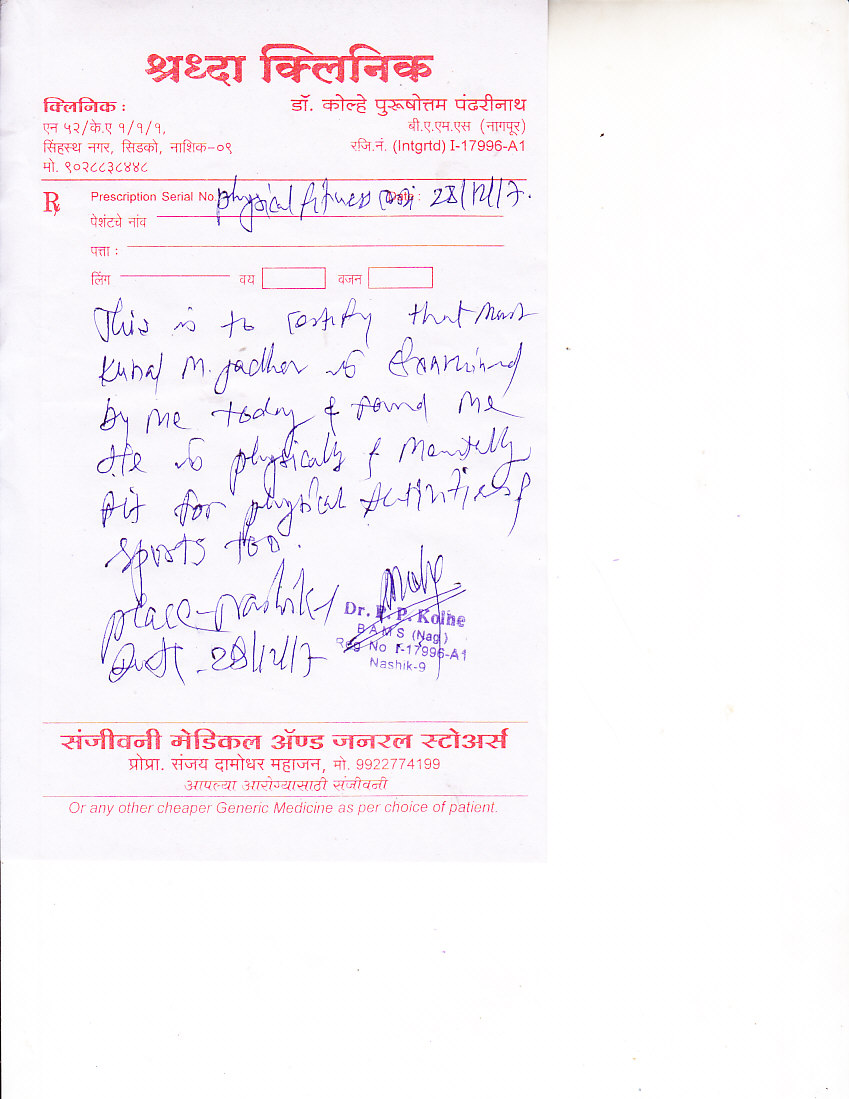 श्रध्दा क्लिनिक
क्लिनिक : डॉ. कोल्हे पुरूषोत्तम पंढरीनाथ
एन ५२/के.ए १/१/१, बी.ए.एम.एस (नागपूर)
सिंहस्थ नगर, सिडको, नाशिक-०९ रजि.नं. (Intgrtd) I-17996-A1
मो. ९०२८८३८४४८
Rx Prescription Serial No. physical fitness 28/12/17.
पेशंटचे नांव
पत्ता :
लिंग वय वजन
This is to certify that Mast
Kunal M. Jadhav is Examined
by me today & found me
He is physically & Mentally
fit for physical Activities &
sports too.
place - Nashik
28/12/17
Dr. P. P. Kolhe
B A M S (Nag.)
Reg No I-17996-A1
Nashik-9
संजीवनी मेडिकल ॲण्ड जनरल स्टोअर्स
प्रोप्रा. संजय दामोधर महाजन, मो. 9922774199
आपल्या आरोग्यासाठी संजीवनी
Or any other cheaper Generic Medicine as per choice of patient.